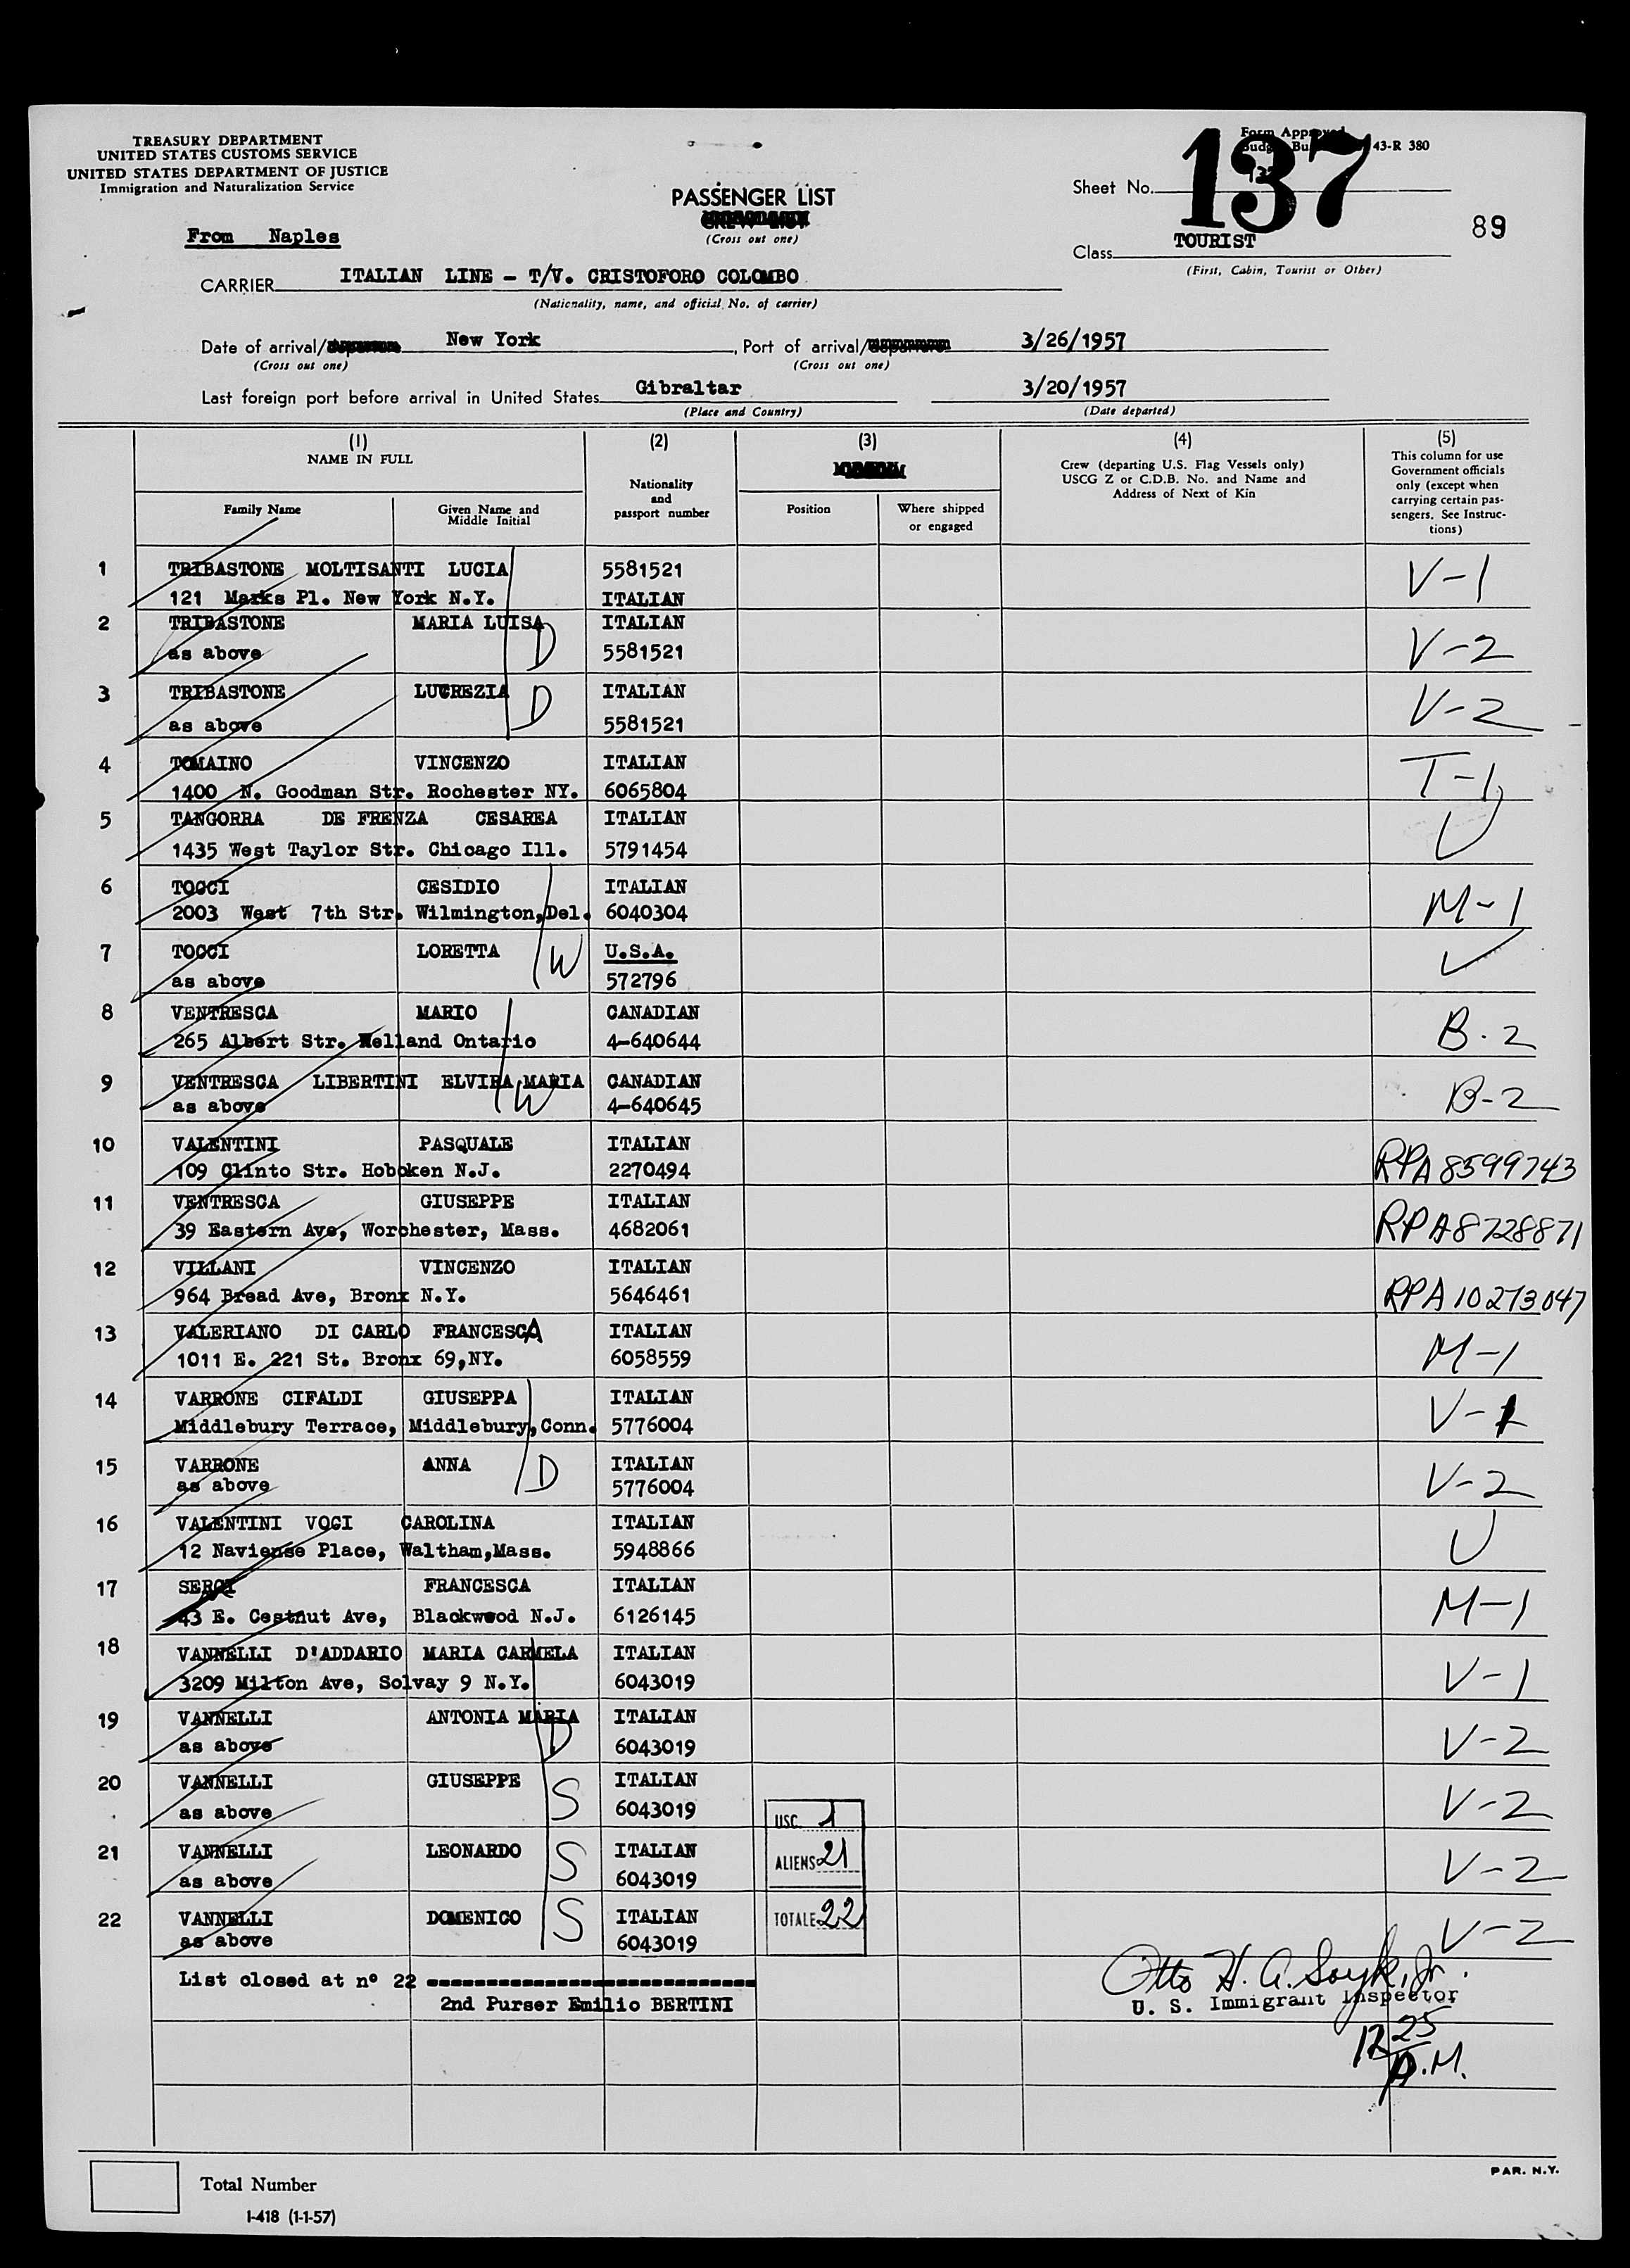 TREASURY DEPARTMENT
UNITED STATES CUSTOMS SERVICE
UNITED STATES DEPARTMENT OF JUSTICE
Immigration and Naturalization Service
Form Approved
43-R 380
PASSENGER LIST
(Cross out one)
Sheet No.
137
89
From Naples
Class TOURIST
(First, Cabin, Tourist or Other)
CARRIER ITALIAN LINE - T/V. CRISTOFORO COLOMBO
(Nationality, name, and official No. of carrier)
Date of arrival/ New York , Port of arrival/ 3/26/1957
(Cross out one) (Cross out one)
Last foreign port before arrival in United States Gibraltar 3/20/1957
(Place and Country) (Date departed)
(1) (2) (3) (4) (5)
NAME IN FULL
Family Name
Given Name and
Middle Initial
Nationality
and
passport number
Position
Where shipped
or engaged
Crew (departing U.S. Flag Vessels only)
USCG Z or C.D.B. No. and Name and
Address of Next of Kin
This column for use
Government officials
only (except when
carrying certain pas-
sengers. See Instruc-
tions)
1 TRIBASTONE MOLTISANTI LUCIA 5581521 V-1
121 Marks Pl. New York N.Y. ITALIAN
2 TRIBASTONE MARIA LUISA D ITALIAN V-2
as above 5581521
3 TRIBASTONE LUCREZIA D ITALIAN V-2
as above 5581521
4 TOMAINO VINCENZO ITALIAN T-1
1400 N. Goodman Str. Rochester NY. 6065804
5 TANGORRA DE FRENZA CESAREA ITALIAN U
1435 West Taylor Str. Chicago Ill. 5791454
6 TOCCI CESIDIO ITALIAN M-1
2003 West 7th Str. Wilmington,Del. 6040304
7 TOCCI LORETTA W U.S.A.
as above 572796
8 VENTRESCA MARIO CANADIAN B-2
265 Albert Str. Welland Ontario 4-640644
9 VENTRESCA LIBERTINI ELVIRA MARIA W CANADIAN B-2
as above 4-640645
10 VALENTINI PASQUALE ITALIAN RPA 8599743
109 Clinto Str. Hoboken N.J. 2270494
11 VENTRESCA GIUSEPPE ITALIAN RPA 8728871
39 Eastern Ave, Worchester, Mass. 4682061
12 VILLANI VINCENZO ITALIAN RPA 10273047
964 Bread Ave, Bronx N.Y. 5646461
13 VALERIANO DI CARLO FRANCESCA ITALIAN M-1
1011 E. 221 St. Bronx 69,NY. 6058559
14 VARRONE CIFALDI GIUSEPPA ITALIAN V-1
Middlebury Terrace, Middlebury,Conn. 5776004
15 VARRONE ANNA D ITALIAN V-2
as above 5776004
16 VALENTINI VOCI CAROLINA ITALIAN U
12 Naviense Place, Waltham,Mass. 5948866
17 SERGI FRANCESCA ITALIAN M-1
43 E. Cestnut Ave, Blackwood N.J. 6126145
18 VANNELLI D'ADDARIO MARIA CARMELA ITALIAN V-1
3209 Milton Ave, Solvay 9 N.Y. 6043019
19 VANNELLI ANTONIA MARIA D ITALIAN V-2
as above 6043019
20 VANNELLI GIUSEPPE S ITALIAN V-2
as above 6043019
21 VANNELLI LEONARDO S ITALIAN V-2
as above 6043019
22 VANNELLI DOMENICO S ITALIAN V-2
as above 6043019
USC 1
ALIENS 21
TOTALE 22
List closed at n° 22
2nd Purser Emilio BERTINI
Otto H. A. Soyk, Jr.
U. S. Immigrant Inspector
12 25
P.M.
Total Number
I-418 (1-1-57)
PAR. N.Y.